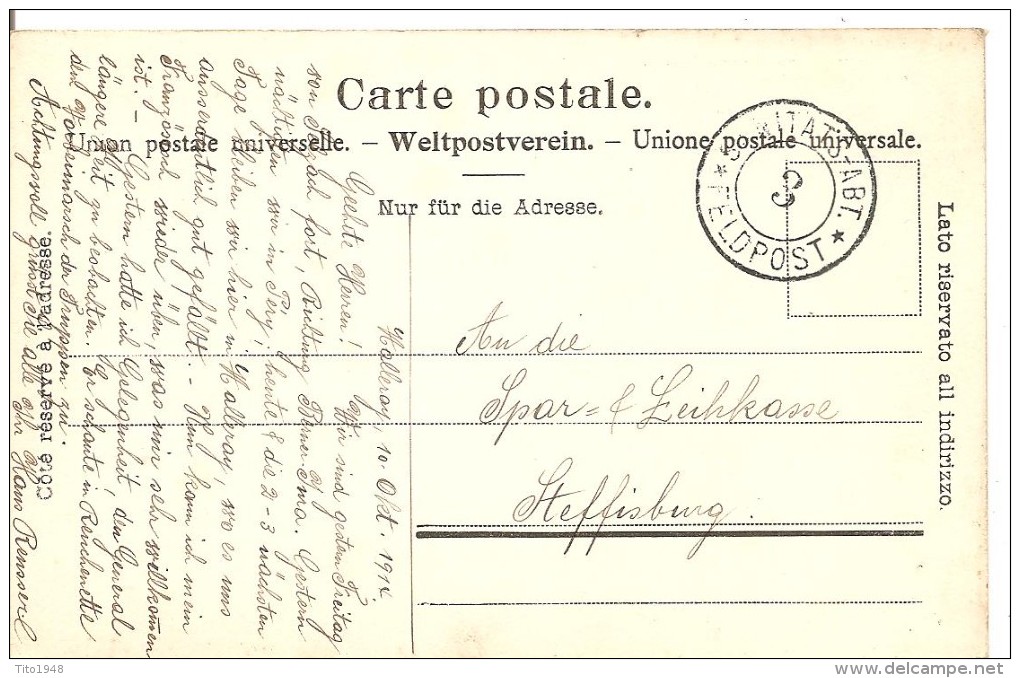 Carte postale.
Union postale universelle. – Weltpostverein. – Unione postale universale.
Nur für die Adresse.
Côté réservé à l'adresse.
Lato riservato all indirizzo.
SANITÄTS-ABT.
3
★ FELDPOST ★
An die
Spar= & Leihkasse
Steffisburg.
Malleray, 10. Okt. 1914.
Geehrte Herren! Wir sind gestern Freitag
von fort, Richtung Berner Jura. Gestern
nächtigten wir in Péry, heute & die 2-3 nächsten
Tage bleiben wir hier in Malleray, wo es uns
ausserordentlich gut gefällt. – Nun kann ich mein
Französisch wieder üben, was mir sehr willkommen
ist. – Gestern hatte ich Gelegenheit, den General
längere Zeit zu beobachten. Er schaute in Reuchenette
dem Vorbeimarsch der Truppen zu.
Achtungsvoll grüsst Sie alle Ihr Hans
Tito1948
delcampe.net